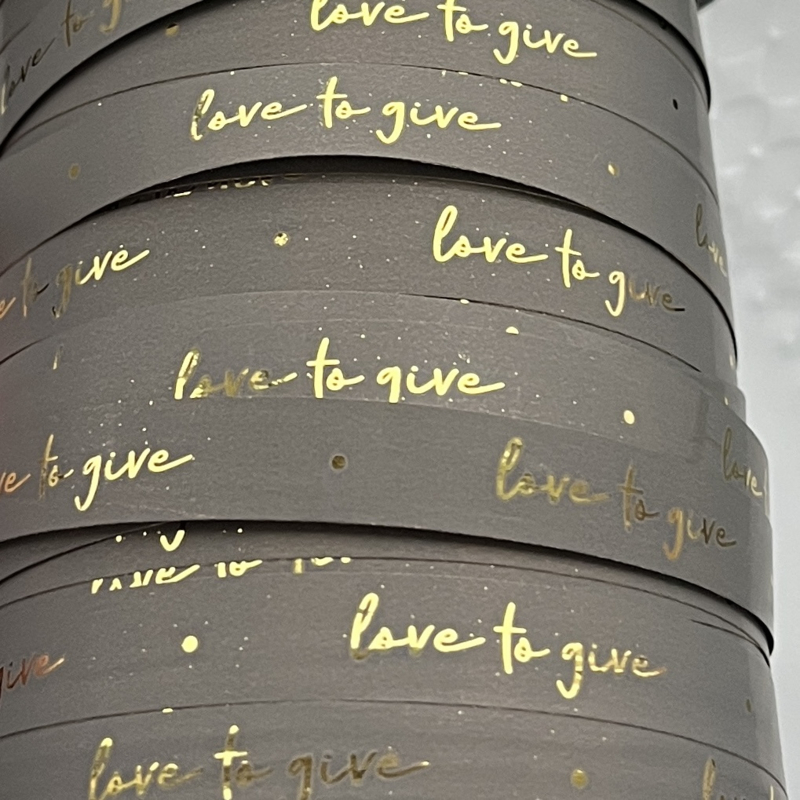 love to give
love to give
love to give
to give love to give love
love to give
to give love to give love
give love to give
love to give